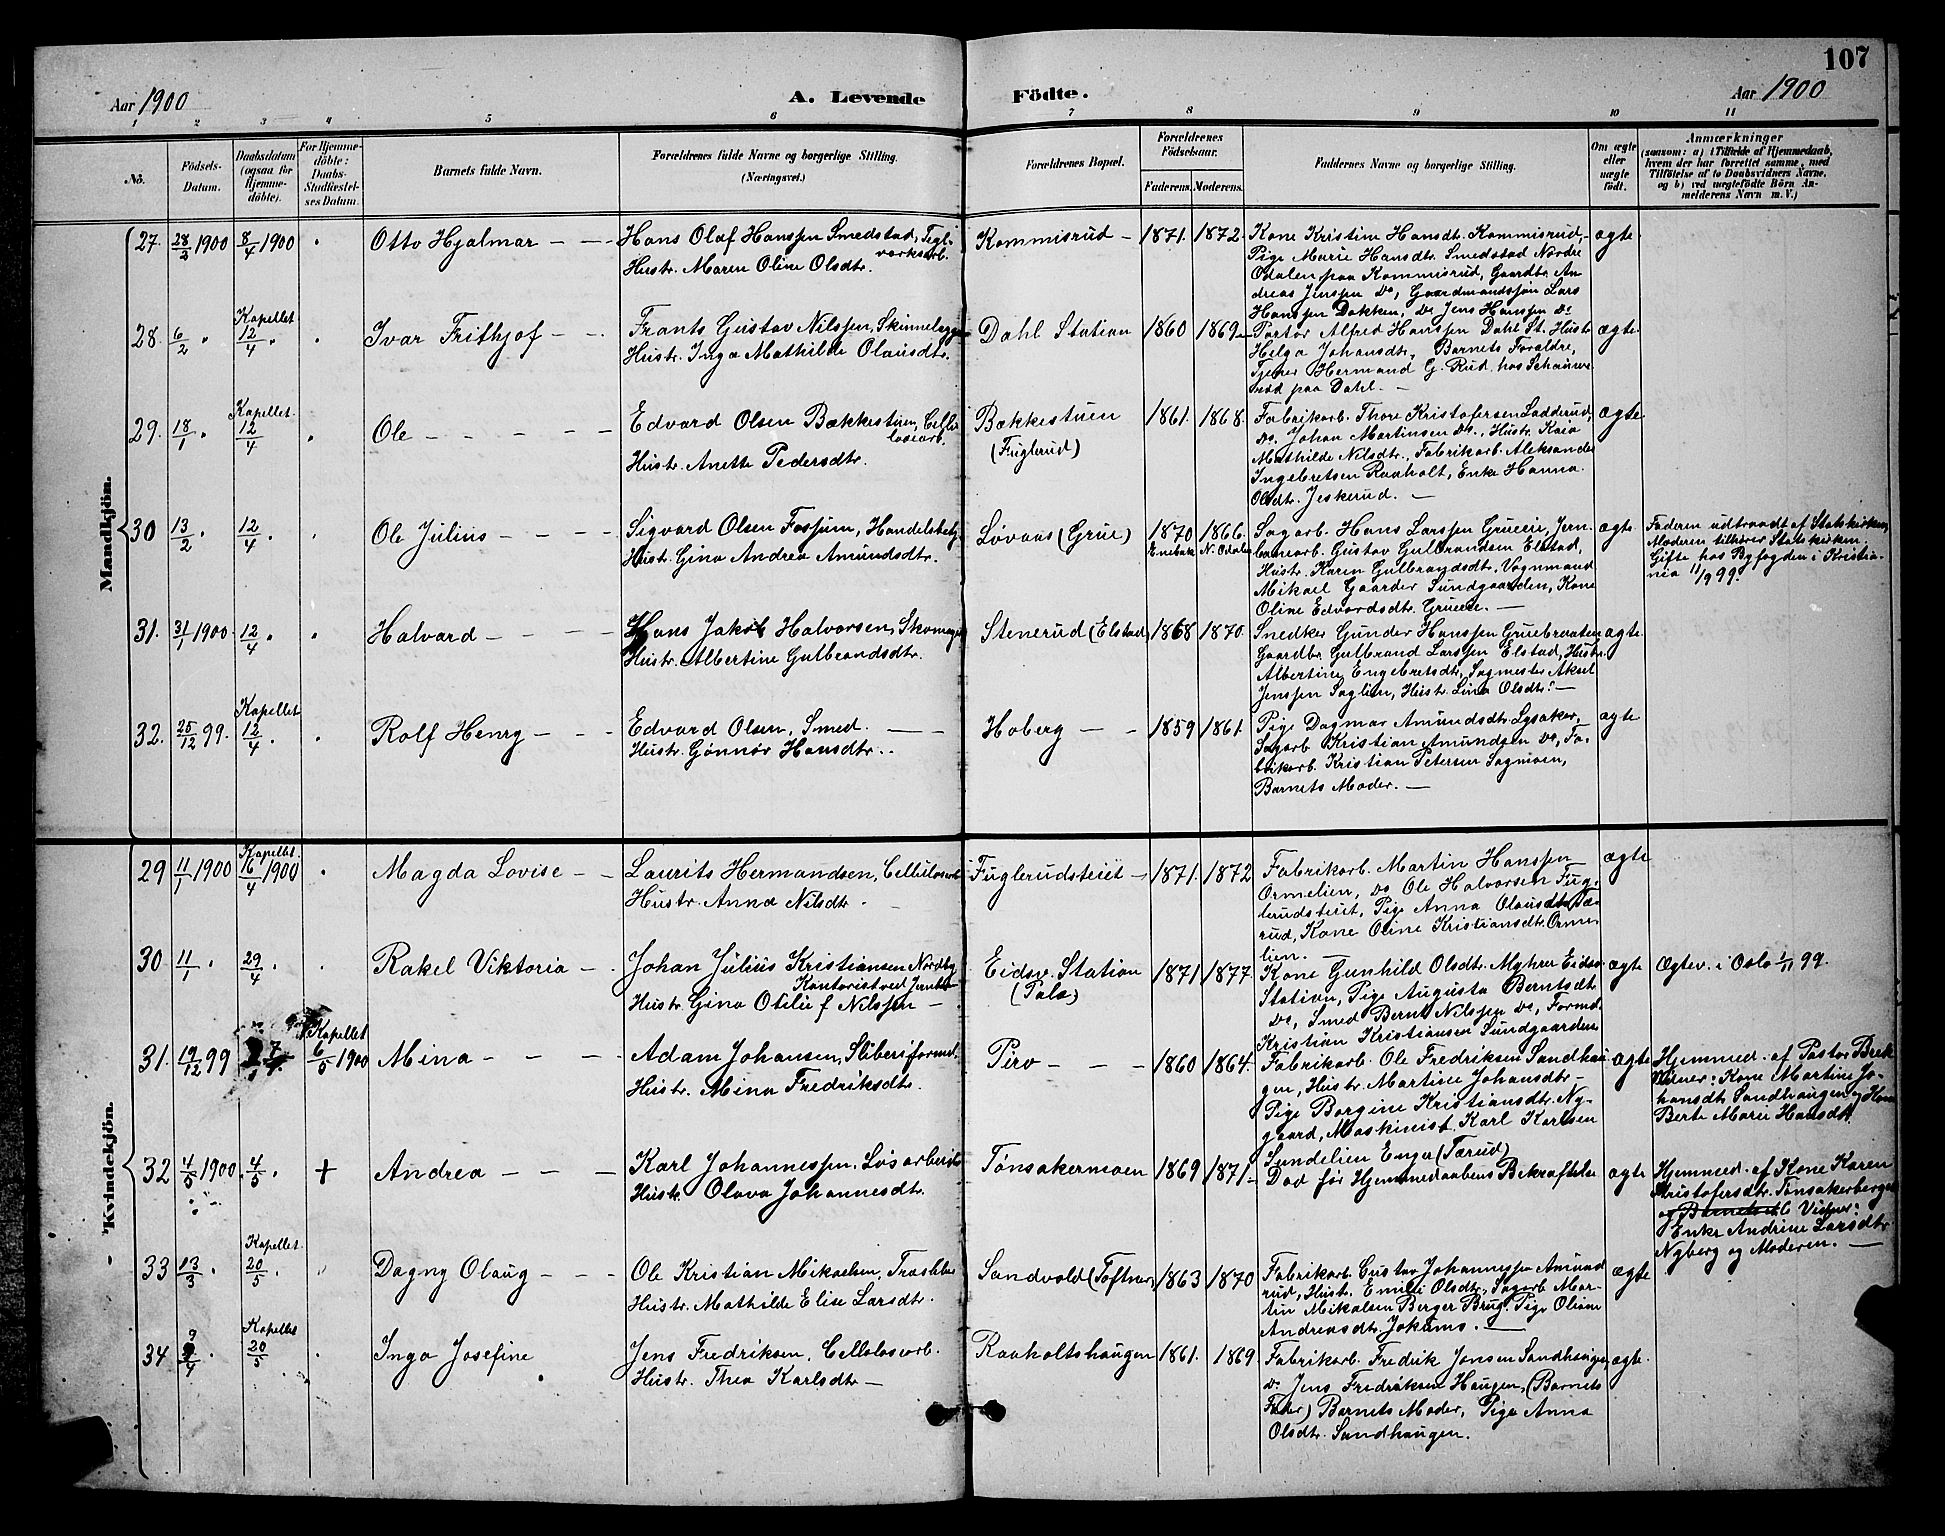 107
Aar 1900
A. Levende Födte.
Aar 1900
1 2 3 4 5 6 7 8 9 10 11
No.
Födsels-
Datum.
Daabsdatum
(ogsaa for
Hjemme-
döbte).
For Hjemme-
döbte:
Daabs-
Stadfæstel-
ses Datum.
Barnets fulde Navn.
Forældrenes fulde Navne og borgerlige Stilling.
(Næringsvei.)
Forældrenes Bopæl.
Forældrenes
Födselsaar.
Faderens. Moderens.
Faddernes Navne og borgerlige Stilling.
Om ægte
eller
uægte
födt.
Anmærkninger
(saasom: a) i Tilfælde af Hjemmedaab,
hvem der har forrettet samme, med
Tilföielse af to Daabsvidners Navne,
og b) ved uægtefödte Börn An-
melderens Navn m. V.)
Mandkjön.
27. 28/2 1900 8/4 1900 Otto Hjalmar
Hans Olaf Hanssen Smedstad, Tegl-
verksarb.
Hustr. Maren Oline Olsdtr.
Kommisrud 1871. 1872.
Kone Kristine Hansdt. Kommisrud,
Pige Marie Hansdtr. Smedstad Nordre
Odalen paa Kommisrud, Gaardbr. An-
dreas Jenssen Do, Gaardmandssøn Lars
Hanssen Dokken, Do Jens Hanssen Do
ægte
28. 6/2 Kapellet 12/4 Ivar Frithjof
Frants Gustav Nilssen, Skinnelægger
Hustr. Inga Mathilde Olausdtr.
Dahl Station 1860 1869
Pastor Alfred Hanssen Dahl St. Hustr
Helga Johansdtr, Barnets Forældre,
Tjener Hermand G. Rud hos
paa Dahl.
ægte
29. 18/1 Kapellet 12/4 Ole
Edvard Olsen Bækkestuen, Cellu-
losearb.
Hustr. Anette Pedersdtr.
Bækkestuen
(Fuglerud)
1861. 1868.
Fabrikarb. Thore Kristofersen Ladderud,
Do. Johan Martinsen Do., Hustr. Kaia
Mathilde Nilsdtr., Fabrikarb. Aleksander
Ingebretsen Raaholt, Enke Hanna
Olsdtr. Jeskerud.
ægte
30 13/2 12/4 Ole Julius
Sigvard Olsen Fossum, Handelsbetj.
Hustr. Gina Andrea Amundsdtr.
Løvaas (Grue)
1870 Enebak 1866. N. Odalen
Sagarb. Hans Larssen Grueeie, Jern-
banearb. Gustav Gulbrandsen Elstad,
Hustr. Karen Gulbrandsdtr. Vognmand
Mikael Gaarder Sundgaarden, Kone
Oline Edvardsdtr. Grueeie.
ægte
Faderen udtraadt af Statskirken,
Moderen tilhører Statskirken.
Gifte hos Byfogden i Kristia-
nia 11/9 99.
31. 31/1 1900 12/4 Halvard
Hans Jakob Halvorsen, Skomager
Hustr. Albertine Gulbrandsdtr.
Stenerud (Elstad) 1868 1870.
Snedker Gunder Hanssen Gruebraaten
Gaardbr Gulbrand Larssen Elstad, Hustr.
Albertine Engebretsdtr, Sagmester Aksel
Jenssen Saglien, Hustr. Lina Olsdtr.
ægte
32. 25/12 99. Kapellet 12/4 Rolf Henry
Edvard Olsen, Smed
Hustr. Gønnør Hansdtr.
Hoberg 1859 1861.
Pige Dagmar Amundsdtr. Lysaker,
Sagarb Kristian Amundsen Do, Fa-
brikarb. Kristian Petersen Sagmoen,
Barnets Moder.
ægte
Kvindekjön.
29 11/1 1900 Kapellet 16/4 1900 Magda Lovise
Laurits Hermandsen, Cellulosearb
Hustr. Anna Nilsdtr.
Fuglerudsteiet 1871. 1872
Fabrikarb. Martin Hanssen
Ormelien, Do Ole Halvorsen Fug-
lerudsteiet, Pige Anna Olausdtr. Tæ-
rud, Kone Oline Kristiansdtr. Orme-
lien.
ægte
30 11/1 29/4 Rakel Viktoria
Johan Julius Kristiansen Nordby
Kontorist ved Jernb.
Hustr Gina Otilie f Nilssen
Eidsv. Station
1871 1877
Kone Gunhild Olsdtr. Myhrer Eidsv.
Station, Pige Augusta Berntsdtr.
Do, Smed Bernt Nilssen Do, Formd.
Kristian Kristiansen Sundgaarden
ægte
Ægtev. i Oslo 1/11 99.
31. 19/12 99 Kapellet 6/5 1900 Mina
Adam Johansen, Sliberiformd.
Hustr. Mina Fredriksdtr.
Piro 1860 1864.
Fabrikarb. Ole Fredriksen Sandhau-
gen, Hustr Martine Johansdtr
Pige Borgine Kristiansdtr. Ny-
gaard, Maskinist Karl Karlsen
Sundelien Enga (Tærud)
ægte
Hjemmed. af Pastor
Vidner: Kone Martine Jo-
hansdt. Sandhaugen og Kone
Berte Marie Hansdtr.
32 4/5 1900. 4/5 + Andrea
Karl Johannessen, Løsarbeider
Hustr. Olava Johannesdtr.
Tønsakermoen 1869 1871
Død før Hjemmedaabens Bekræftelse
ægte
Hjemmed. af Kone Karen
Kristofersdtr. Tønsakerberget
Vidner:
Enke Andrine Larsdtr.
Nyberg og Moderen.
33 13/3 Kapellet 20/5 Dagny Olaug
Ole Kristian Mikaelsen, Træsliber
Hustr. Mathilde Elise Larsdtr.
Sandvold (Toftner) 1863 1870
Fabrikarb. Gustav Johannessen Amund-
rud, Hustr. Emilie Olsdtr, Sagarb. Mar-
tin Mikalsen Berger Brug. Pige Oline
Andreasdtr. Jokums.
ægte
34 9/4 Kapellet 20/5 Inga Josefine
Jens Fredriksen, Cellulosearb.
Hustr. Thea Karlsdtr
Raaholtshaugen 1861. 1869
Fabrikarb. Fredrik Jonsen Sandhaugen,
Do Jens Fredriksen Haugen, (Barnets
Fader) Barnets Moder, Pige Anna
Olsdtr. Sandhaugen.
ægte.